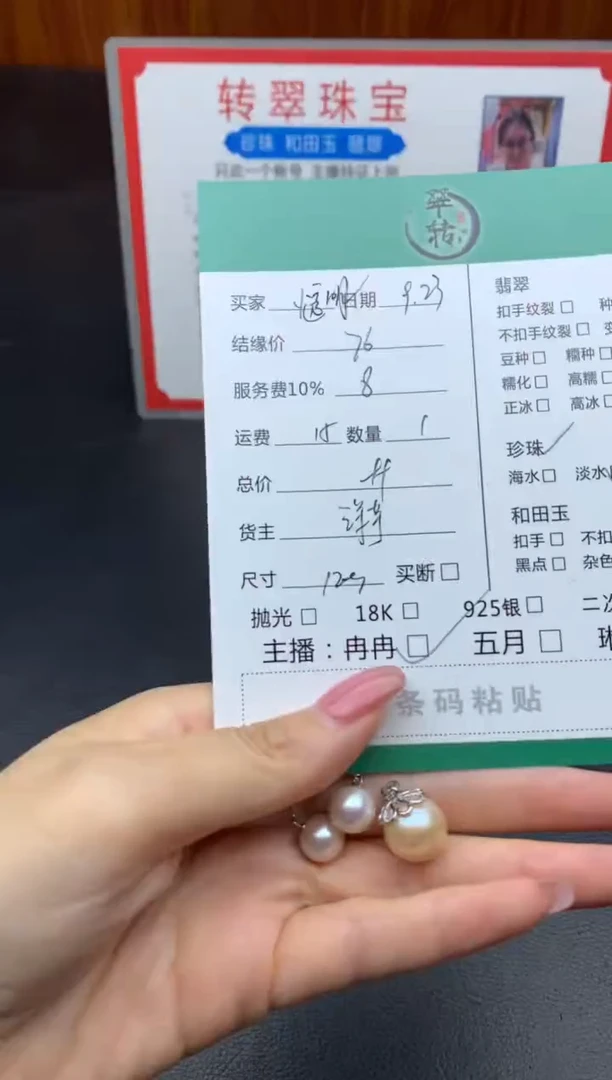 转翠珠宝
珍珠 和田玉 翡翠
只此一个账号 主播持证上岗
翠转
买家 透明 日期 9.23
结缘价 76
服务费10% 8
运费 15 数量 1
总价
货主
尺寸 买断□
抛光□ 18K□ 925银□ 二次
主播：冉冉□ 五月□ 琳
条码粘贴
翡翠
扣手纹裂□ 种
不扣手纹裂□ 变
豆种□ 糯种□
糯化□ 高糯□
正冰□ 高冰□
珍珠
海水□ 淡水
和田玉
扣手□ 不扣
黑点□ 杂色